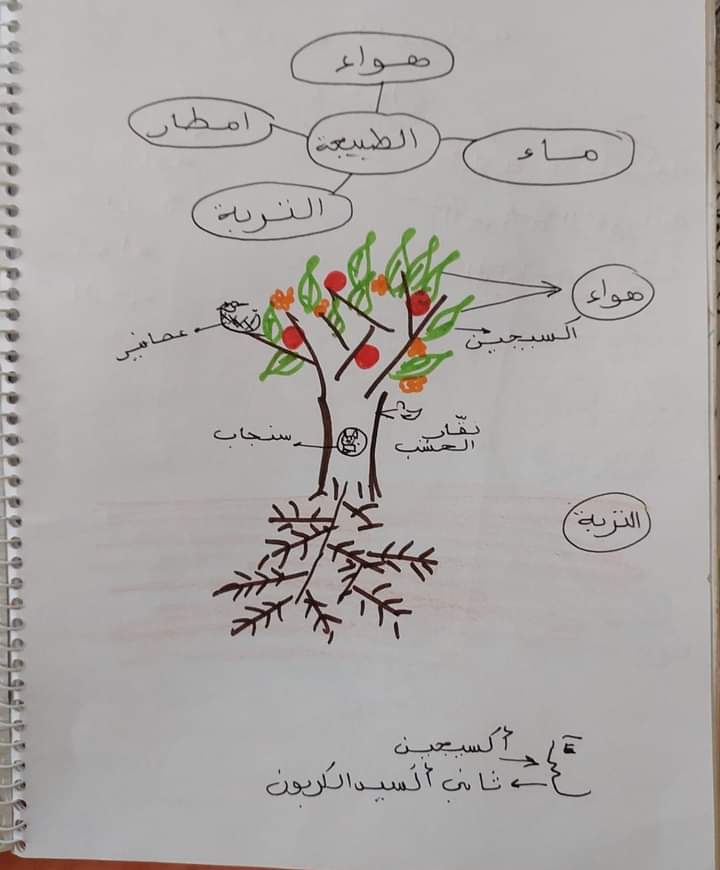 هواء
امطار
الطبيعة
ماء
التربة
هواء
عصافير
أكسيجين
سنجاب
نقّار
الخشب
التربة
أكسيجين
ثاني أكسيد الكربون